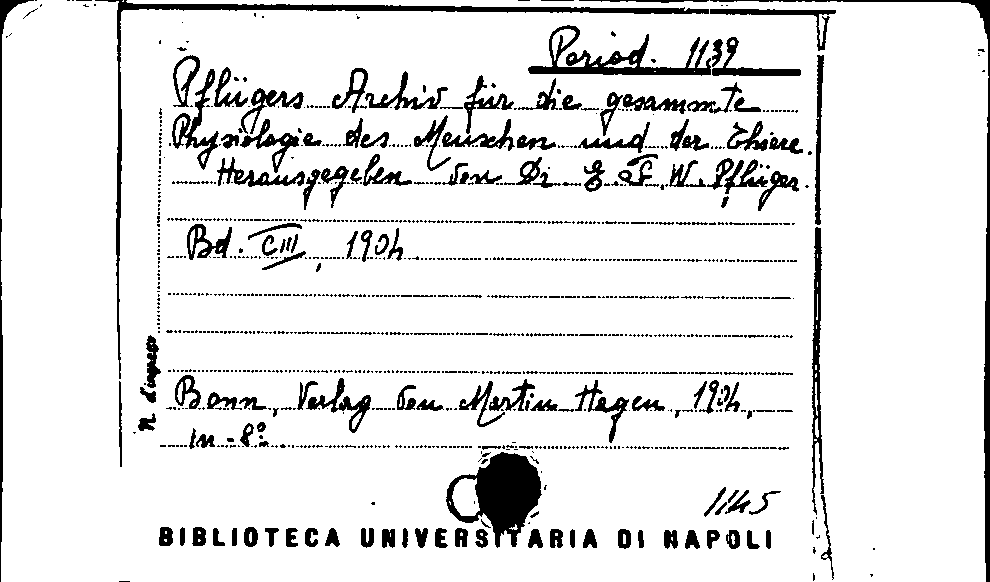 Period. 1139
Pflügers Archiv für die gesammte
Physiologie des Menschen und der Thiere.
Herausgegeben von Dr E. F. W. Pflüger.
Bd. CIII, 1904
Bonn, Verlag von Martin Hagen, 1904,
in-8º.
N. d'ingresso
1145
BIBLIOTECA UNIVERSITARIA DI NAPOLI